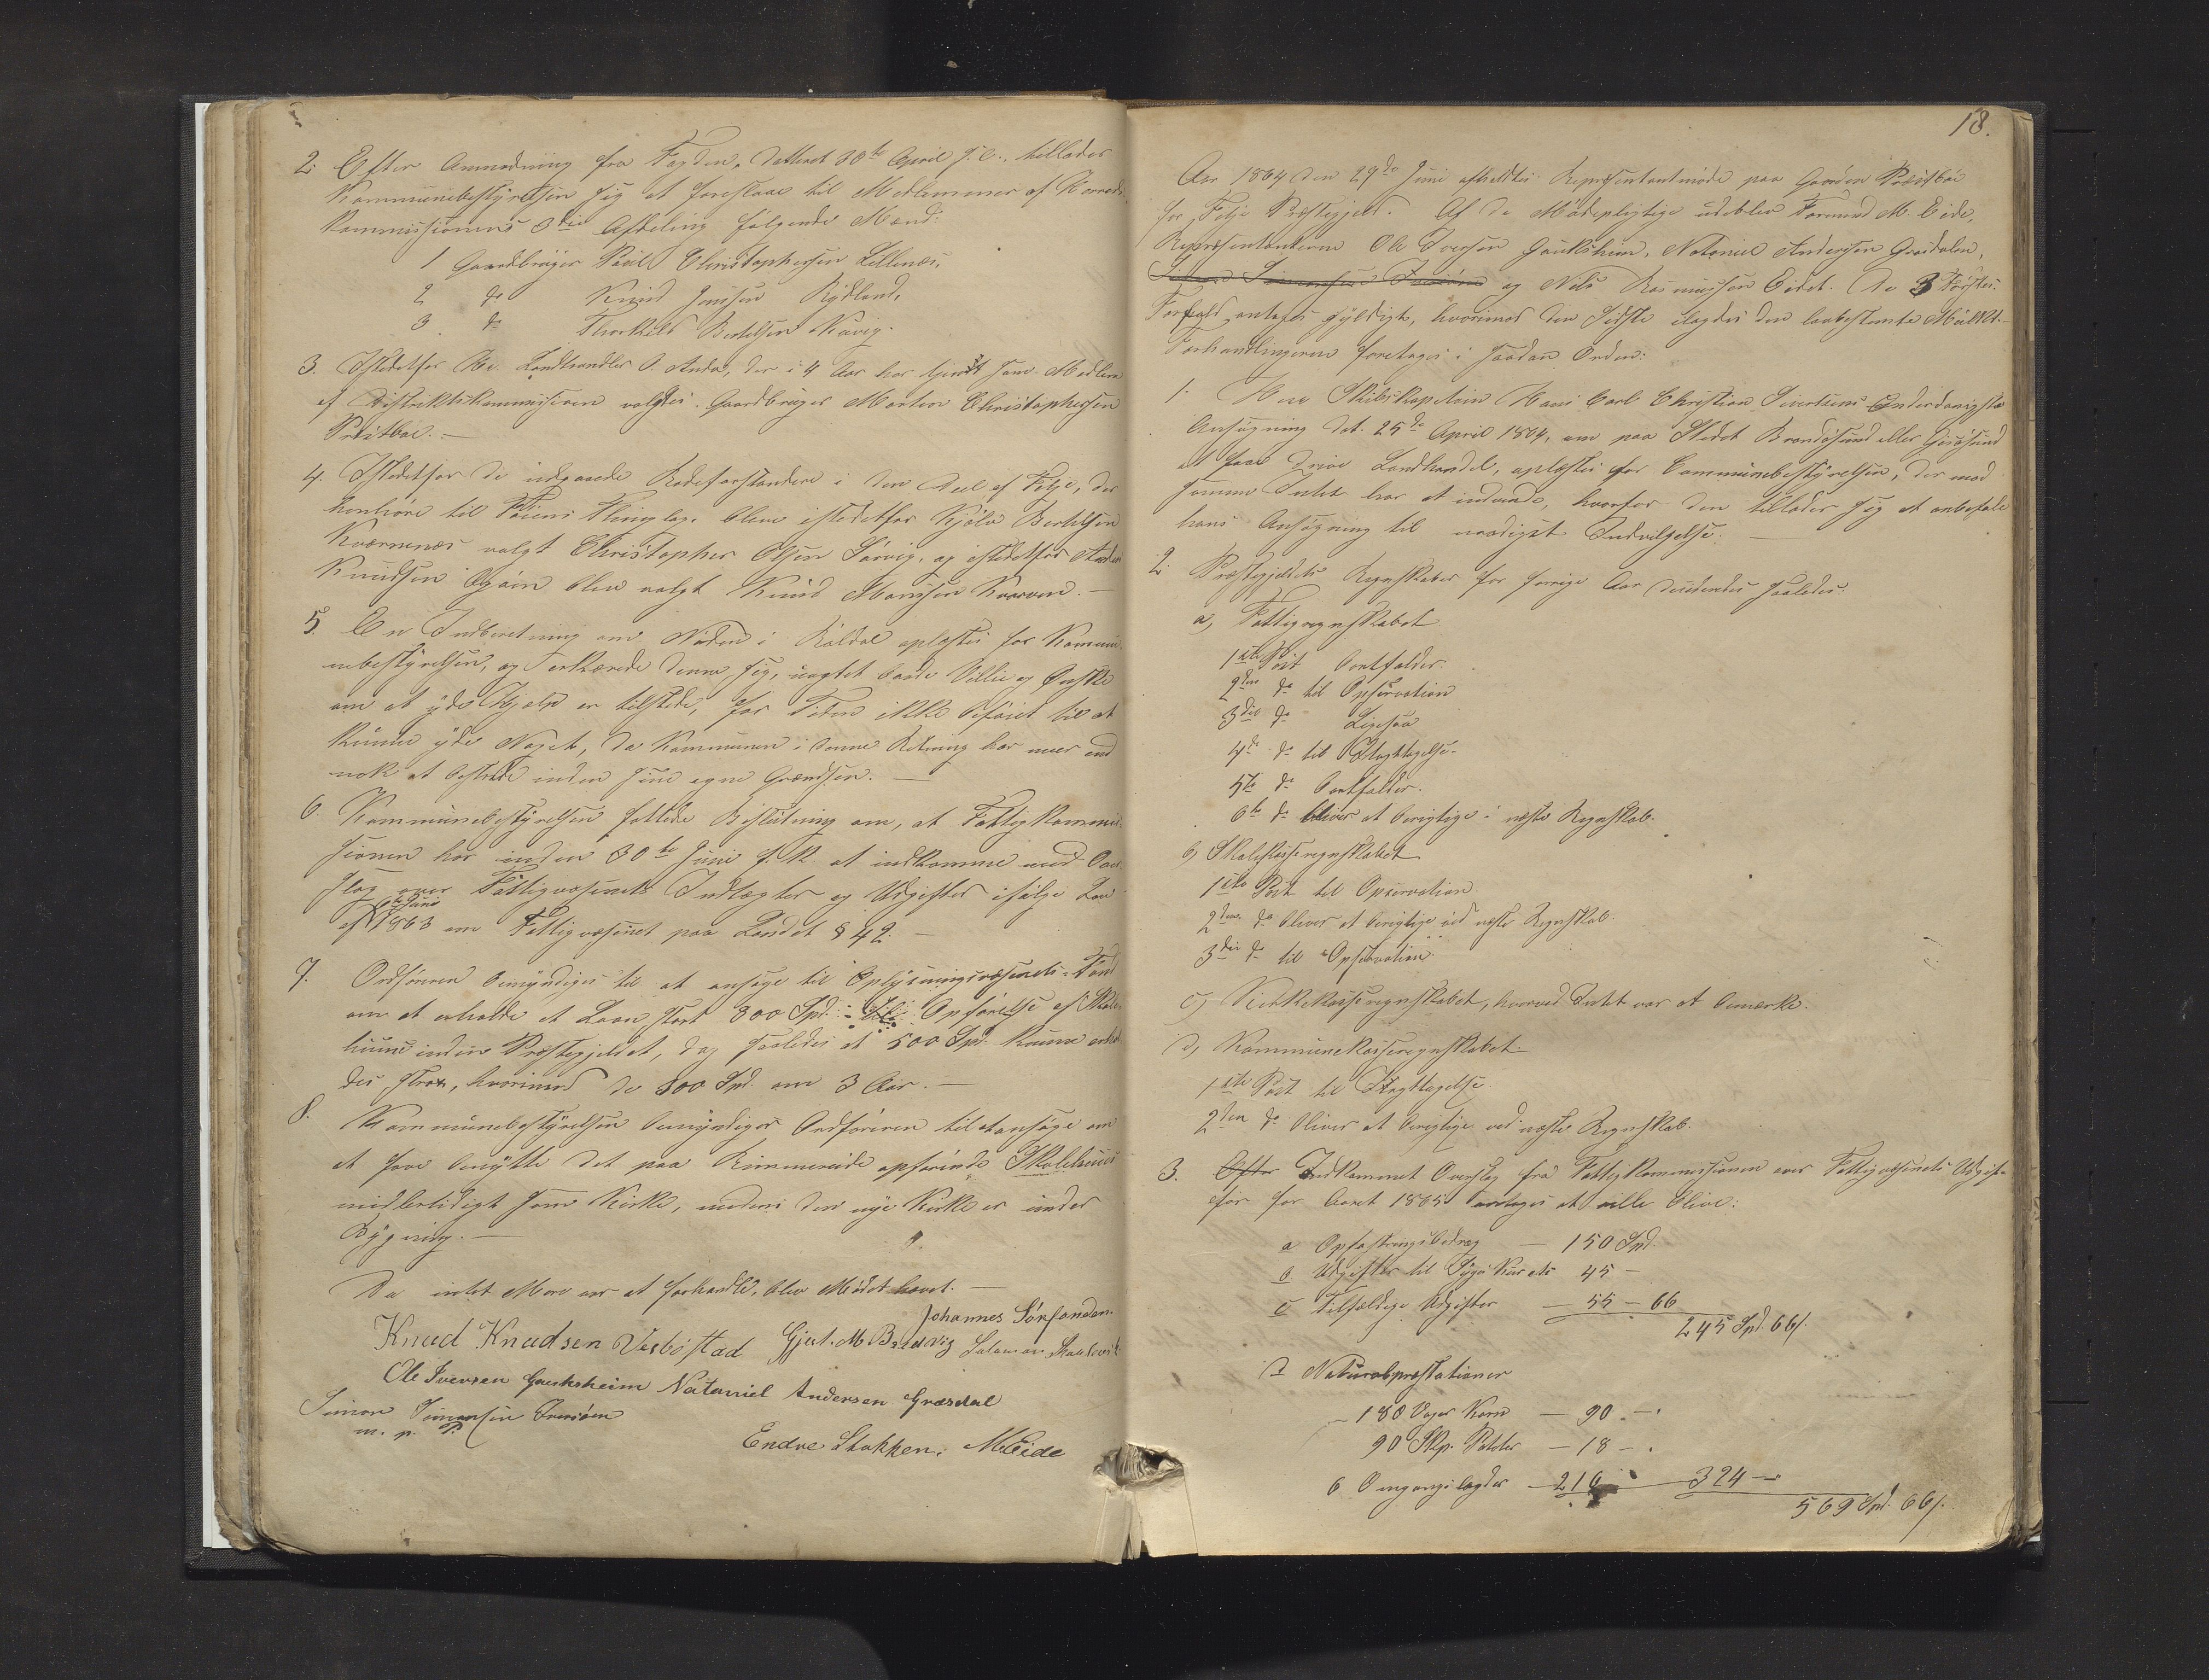 2. Efter Anmodning fra Fogden, dateret 30te April d. A., tillader
Kommunebestyrelsen sig at foreslaae til Medlemmer af
Kommissionens 3die Afdeling følgende Mænd:
1 Gaardbruger Paul Christophersen Lillenæs,
2 do Knud Jenssen Rydland,
3 do Thorkild Bertelsen Kaavig.
3. Istedetfor Hr. Landhandler O. Andø, der i 4 Aar har tjent som Medlem
af Distriktskommissionen valgtes Gaardbruger Morten Christophersen
Prestbøe. —
4. Istedetfor de udgaaede Rodeforstandere i den Deel af Fitje, der
henhøre til Føiens Thinglag, bleve istedetfor Kjøln Bertelsen
Kværnenæs valgt Christopher Olsen Sørvig, og istedetfor
Knudsen blev valgt Knud Monssen Kaarven. —
5. En Indberetning om Nøden i Røldal oplæstes for Kommu-
nebestyrelsen, og erklærede denne sig, uagtet baade Villie og Ønske
om at yde Hjælp er tilstede, for Tiden ikke beføiet til at
kunne yde Noget, da Kommunen i denne Retning har mere end
nok at bestride inden sine egne Grændser. —
6 Kommunebestyrelsen fattede Beslutning om, at Fattigkommis-
sionen har inden 30te Juni f. K. at indkomme med Over-
slag over Fattigvæsenets Indtægter og Udgifter ifølge Lov
af 6te Juni 1863 om Fattigvæsenet paa Landet § 42. —
7. Ordføreren bemyndiges til at ansøge til Oplysningsvæsenets-Fond
om at erholde et Laan stort 800 Spd. til Opførelse af Skole-
huse inden Præstegjeldet, dog saaledes at 500 Spd. kunne erhol-
des strax, hvorimod de 300 Spd. om 3 Aar. —
8. Kommunebestyrelsen bemyndiger Ordføreren til at ansøge om
at faae benytte det paa Rimmereide opførende Skolehuus
midlertidigt som Kirke, medens den nye Kirke er under
Bygning. —
Da intet Mere var at forhandle, blev Mødet hævet. —
Johannes Sørfonden.
Knud Knudsen Vesbøstad Gjert. M. Brædvig Salamon
Ole Iversen Gauksheim Nataniel Andersen Græsdal
Simon Simonsen Iversøen
m. p. P.
Endre Stokken. M. Eide
18.
Aar 1864 den 29de Juni afholdtes Repræsentantmøde paa Gaarden Præstbøe
for Fitje Præstegjeld. Af de Mødepligtige udeblev Formand M. Eide,
Repræsentanterne Ole Iversen Gauksheim, Nataniel Andersen Græsdalen,
og Nils Rasmussen Eidet. De 3 Førstes
Forfald antoges gyldigt, hvorimod den Sidste ilagdes den lovbestemte Mulkt. —
Forhandlingerne foretoges i saadan Orden:
1. Herr Skibskaptein Hans Carl Christian Sivertsens Underdanigste
Ansøgning dat. 25de April 1864, om paa Stedet Brandøsund eller Gjøsøsund
at faae drive Landhandel, oplæstes for Communebestyrelsen, der mod
samme Intet har at indvende, hvorfor den tillader sig at anbefale
hans Ansøgning til naadigst Indvilgelse. —
2. Præstegjeldets Regnskaber for forrige Aar decideredes saaledes:
a) Fattigregnskabet
1ste Post bortfalder.
2den do til Observation
3die do Ligesaa
4de do til Iagttagelse.
5te do bortfalder.
6te do bliver at berigtige i næste Regnskab.
b) Skolekasseregnskabet
1ste Post til Observation
2den do bliver at berigtige ved næste Regnskab.
3die do til Observation.
c) Kirkekasseregnskabet, hvorved Intet var at bemærke.
d) Kommunekasseregnskabet.
1ste Post til Iagttagelse
2den do bliver at berigtige ved næste Regnskab.
3. Efter Indkommet Overslag fra Fattigkommissionen over Fattigvæsenets Udgif-
ter for Aaret 1865 antages at ville blive:
a Opfostringsbidrag — 150 Spd.
b Udgifter til Syges Kur etc 45 —
c Tilfældige Udgifter — 55 — 66
245 Spd. 66 s.
d Naturalpræstationer
180 Voger Korn — 90 — .
90 Skp. Poteter — 18 — .
6 Omgangslægder — 216 324 —
569 Spd. 66 s.